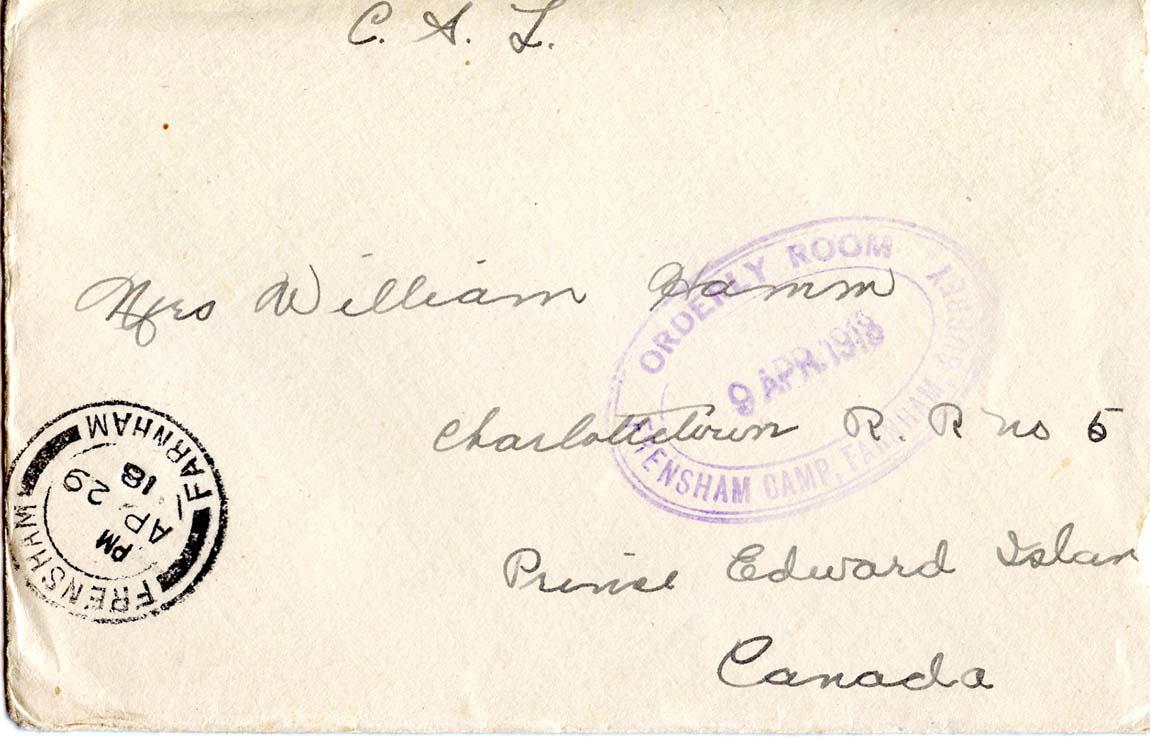 C. A. L.
Mrs William Hamm
Charlottetown R. R no 5
Prince Edward Islan
Canada
ORDERLY ROOM
9 APR. 1918
FRENSHAM CAMP, FARNHAM, SURREY
FRENSHAM
FARNHAM
FARNHAM
PM
AP 29
18